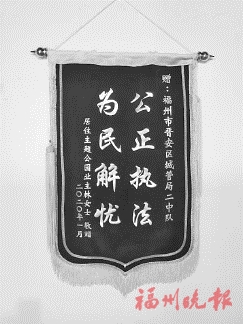 赠：福州市晋安区城管局二中队
公正执法
为民解忧
居住主题公园业主林女士 敬赠
二〇二〇年一月
福州晚报